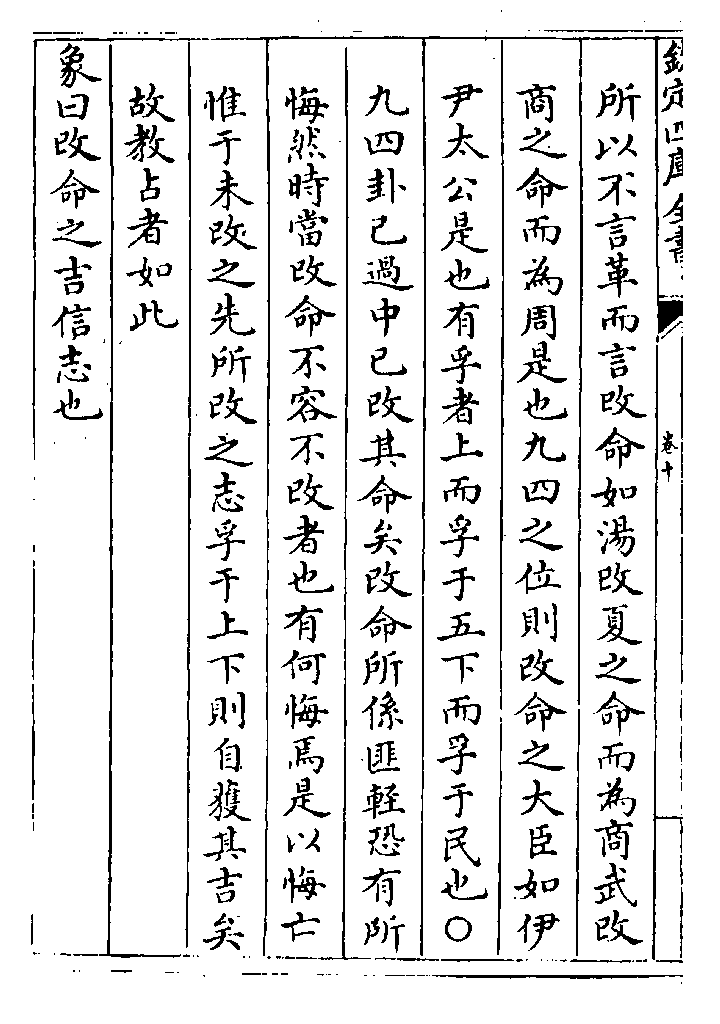 欽定四庫全書
卷十
所以不言革而言改命如湯改夏之命而為商武改
商之命而為周是也九四之位則改命之大臣如伊
尹太公是也有孚者上而孚于五下而孚于民也〇
九四卦已過中已改其命矣改命所係匪輕恐有所
悔然時當改命不容不改者也有何悔焉是以悔亡
惟于未改之先所改之志孚于上下則自獲其吉矣
故教占者如此
象曰改命之吉信志也